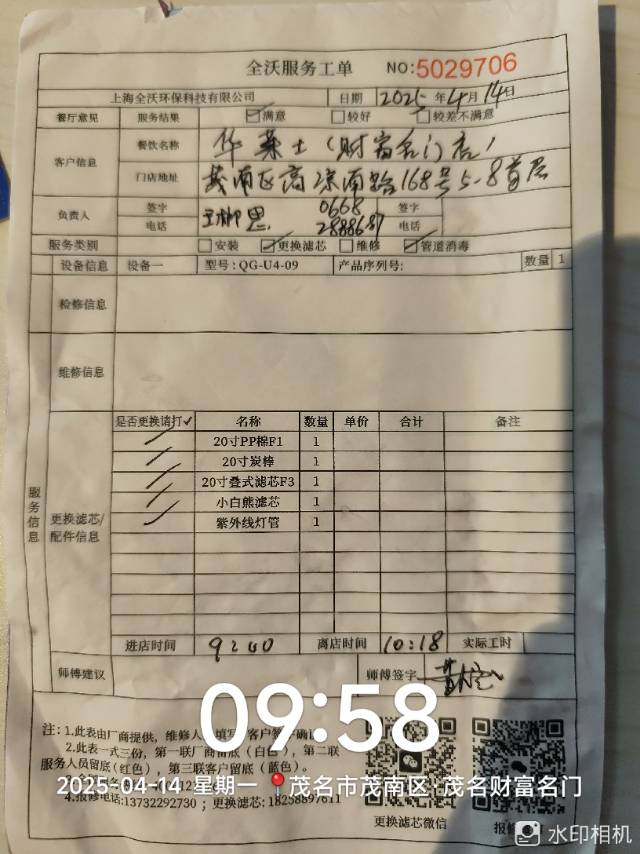 全沃服务工单 NO:5029706
上海全沃环保科技有限公司 日期 2025年4月14日
餐厅意见 服务结果 ☑满意 □较好 □较差不满意
客户信息 餐饮名称 华莱士(财富名门店)
门店地址 茂南区高凉南路168号5-8首层
负责人 签字 签字
电话 0668 2888687 电话
服务类别 □安装 ☑更换滤芯 □维修 ☑管道消毒
设备信息 设备一 型号:QG-U4-09 产品序列号: 数量 1
检修信息
维修信息
服务信息
更换滤芯/配件信息
是否更换请打✓ 名称 数量 单价 合计 备注
✓ 20寸PP棉F1 1
✓ 20寸炭棒 1
✓ 20寸叠式滤芯F3 1
✓ 小白熊滤芯 1
✓ 紫外线灯管 1
进店时间 9:40 离店时间 10:18 实际工时
师傅建议 师傅签字
09:58
注:1.此表由厂商提供,维修人 填写 客户签 确认
2.此表一式三份,第一联厂商留底(白色),第二联
服务人员留底(红色),第三联客户留底(蓝色)。
2025-04-14 星期一 茂名市茂南区·茂名财富名门
4.报修电话:13732292730;更换滤芯:18258897611
更换滤芯微信 报修
水印相机